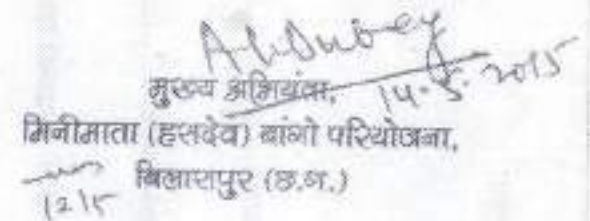 A.K. Dubey
14.5.2015
मुख्य अभियंता,
मिनीमाता (हसदेव) बांगो परियोजना,
बिलासपुर (छ.ग.)
12/5